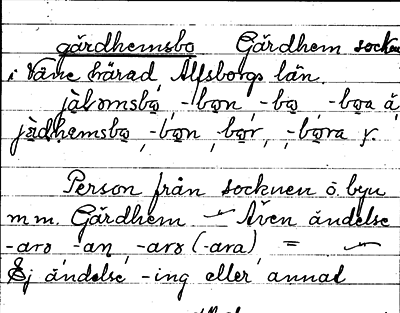 gärdhemsbo Gärdhem socken
i Väne härad, Älfsborgs län.
jàlomsbo̱, -bo̱n, -bo̱, -bo̱a ä,
jàdhemsbo̱, -bo̱n, bo̱r, -bo̱ra r.
Person från socknen o. byn
m.m. Gärdhem — Även ändelse
-arə -an, -arə (-ara) =
Ej ändelse -ing eller annat